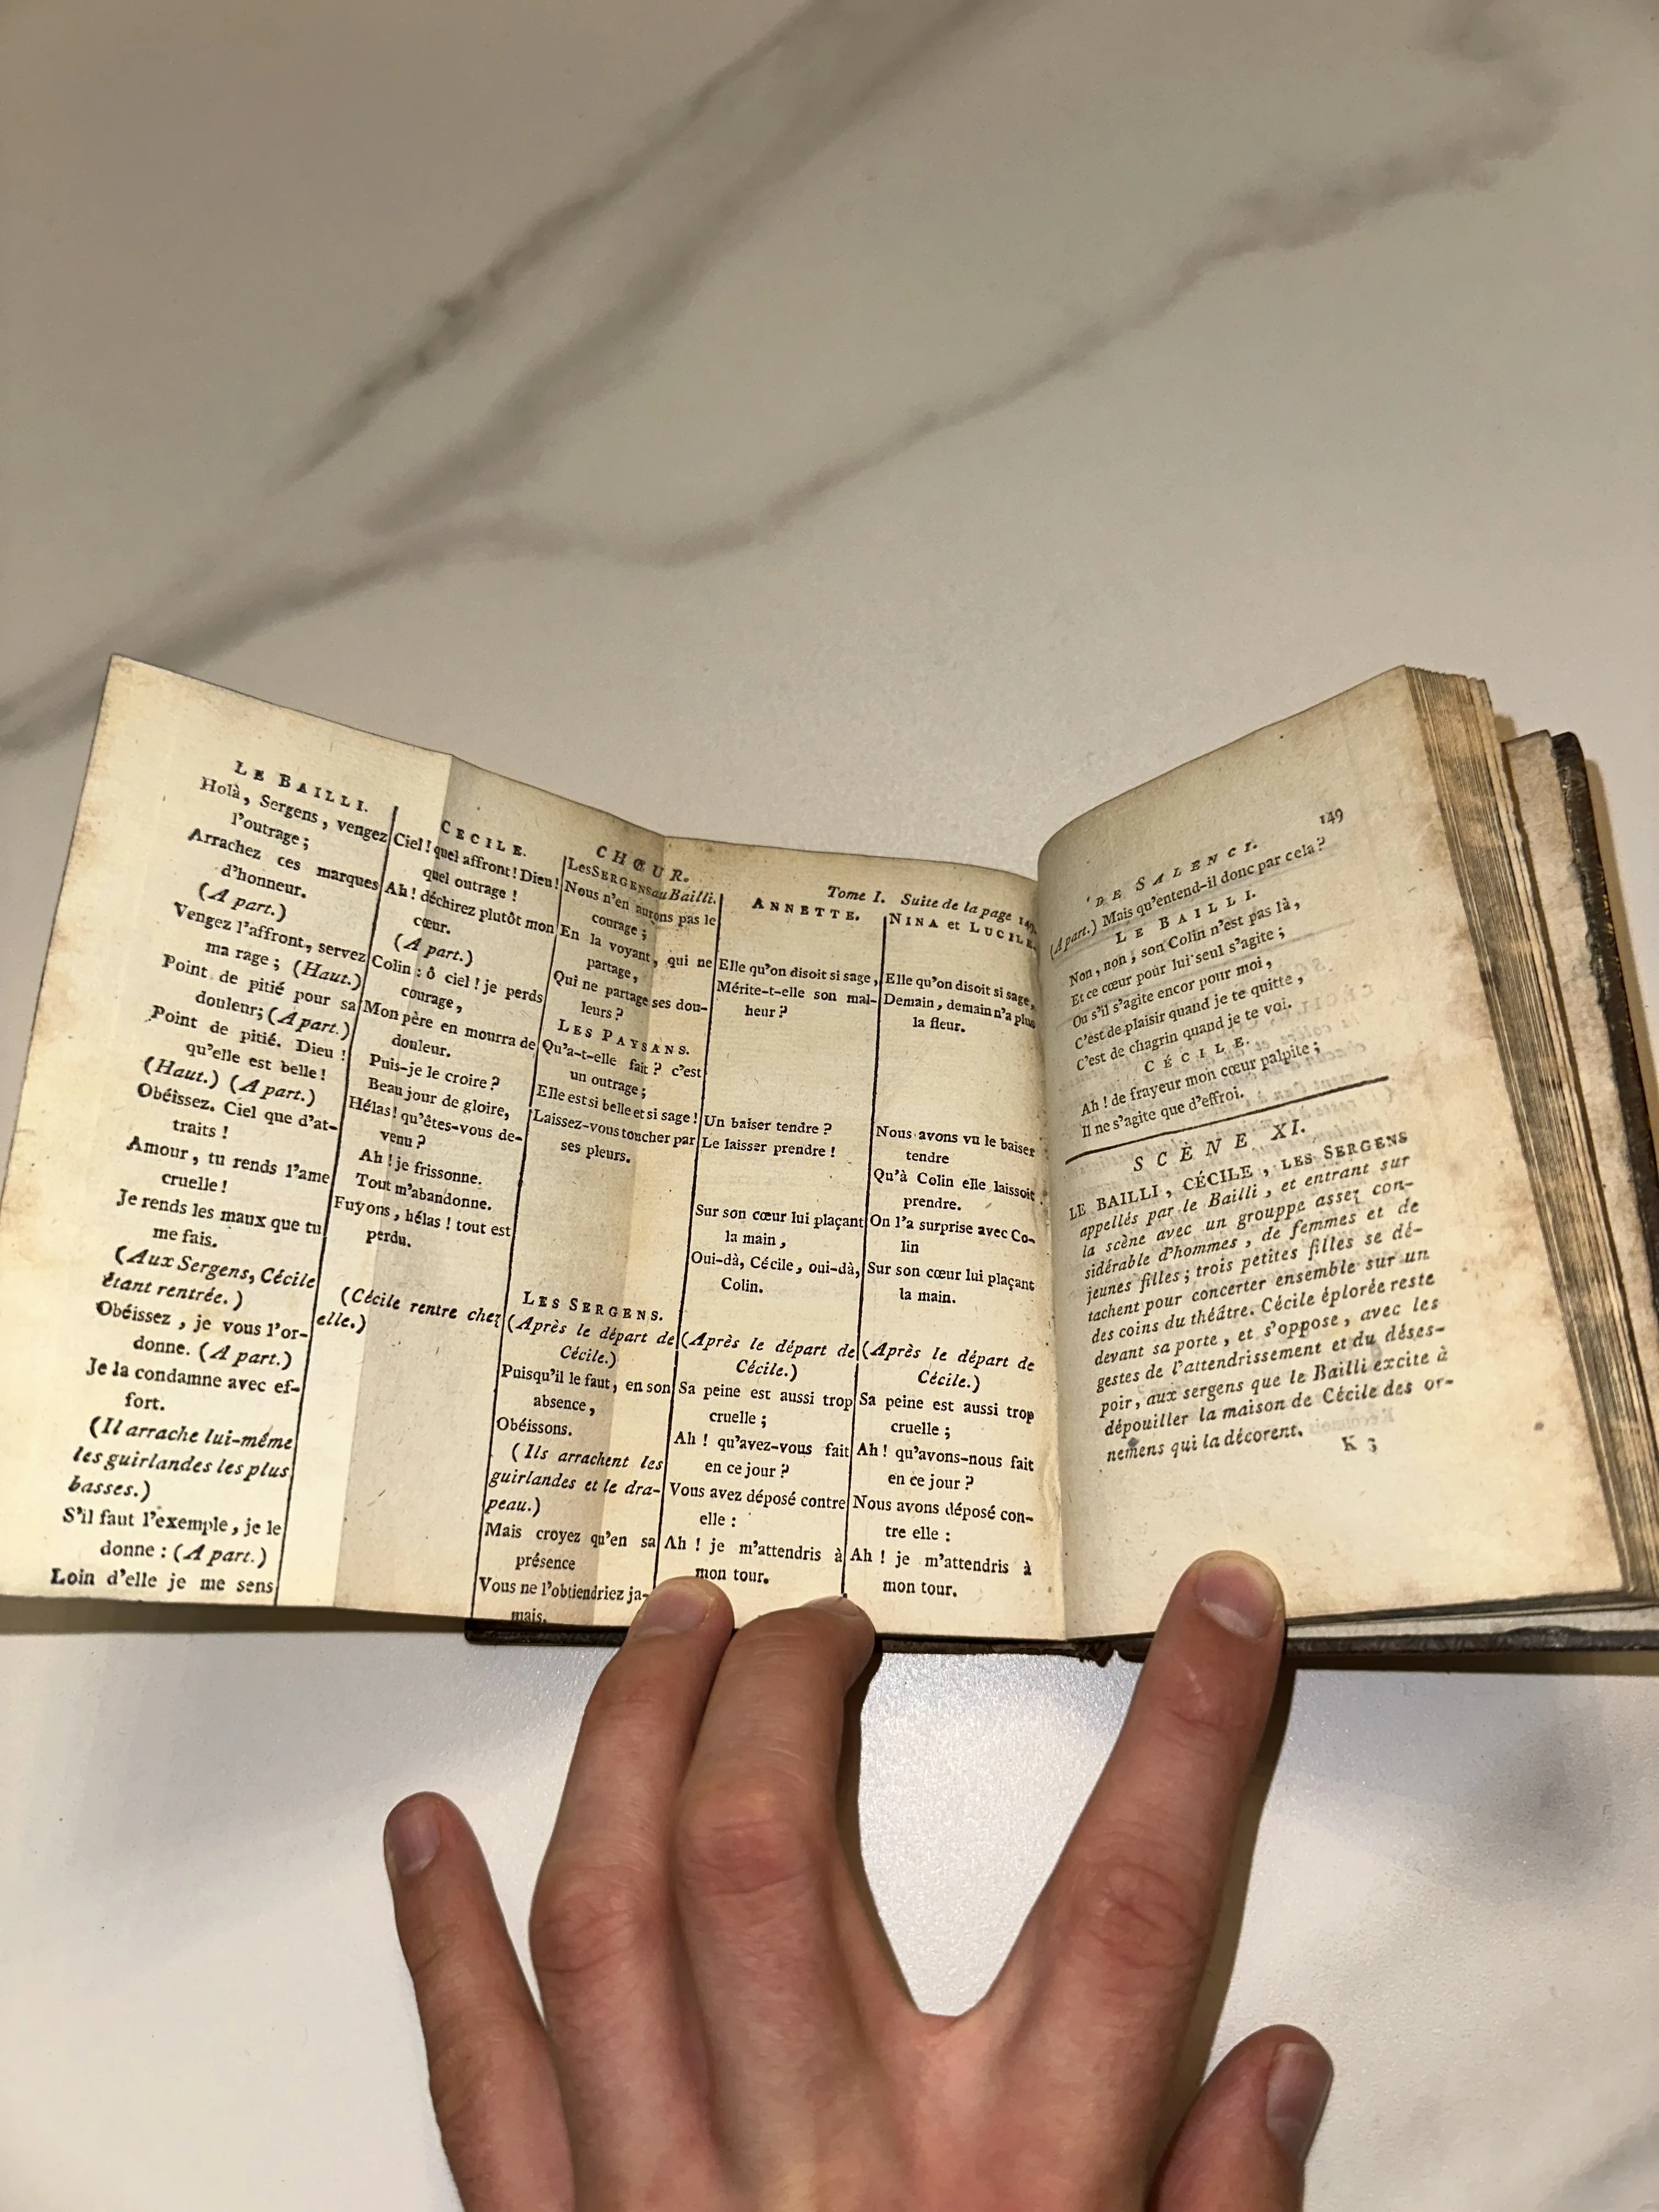 LE BAILLI.
Holà, Sergens, vengez
l'outrage;
Arrachez ces marques
d'honneur.
(A part.)
Vengez l'affront, servez
ma rage; (Haut.)
Point de pitié pour sa
douleur; (A part.)
Point de pitié. Dieu!
qu'elle est belle!
(Haut.) (A part.)
Obéissez. Ciel que d'at-
traits!
Amour, tu rends l'ame
cruelle!
Je rends les maux que tu
me fais.
(Aux Sergens, Cécile
étant rentrée.)
Obéissez, je vous l'or-
donne. (A part.)
Je la condamne avec ef-
fort.
(Il arrache lui-même
les guirlandes les plus
basses.)
S'il faut l'exemple, je le
donne: (A part.)
Loin d'elle je me sens
CECILE.
Ciel! quel affront! Dieu!
quel outrage!
Ah! déchirez plutôt mon
cœur.
(A part.)
Colin: ô ciel! je perds
courage,
Mon père en mourra de
douleur.
Puis-je le croire?
Beau jour de gloire,
Hélas! qu'êtes-vous de-
venu?
Ah! je frissonne.
Tout m'abandonne.
Fuyons, hélas! tout est
perdu.
(Cécile rentre chez
elle.)
CHŒUR.
Les SERGENS au Bailli.
Nous n'en aurons pas le
courage;
En la voyant, qui ne
partage,
Qui ne partage ses dou-
leurs?
LES PAYSANS.
Qu'a-t-elle fait? c'est
un outrage;
Elle est si belle et si sage!
Laissez-vous toucher par
ses pleurs.
LES SERGENS.
(Après le départ de
Cécile.)
Puisqu'il le faut, en son
absence,
Obéissons.
(Ils arrachent les
guirlandes et le dra-
peau.)
Mais croyez qu'en sa
présence
Vous ne l'obtiendriez ja-
mais.
Tome I. Suite de la page 149.
ANNETTE.
Elle qu'on disoit si sage,
Mérite-t-elle son mal-
heur?
Un baiser tendre?
Le laisser prendre!
Sur son cœur lui plaçant
la main,
Oui-dà, Cécile, oui-dà,
Colin.
(Après le départ de
Cécile.)
Sa peine est aussi trop
cruelle;
Ah! qu'avez-vous fait
en ce jour?
Vous avez déposé contre
elle:
Ah! je m'attendris à
mon tour.
NINA et LUCILE.
Elle qu'on disoit si sage,
Demain, demain n'a plus
la fleur.
Nous avons vu le baiser
tendre
Qu'à Colin elle laissoit
prendre.
On l'a surprise avec Co-
lin
Sur son cœur lui plaçant
la main.
(Après le départ de
Cécile.)
Sa peine est aussi trop
cruelle;
Ah! qu'avons-nous fait
en ce jour?
Nous avons déposé con-
tre elle:
Ah! je m'attendris à
mon tour.
DE SALENCI. 149
(A part.) Mais qu'entend-il donc par cela?
LE BAILLI.
Non, non, son Colin n'est pas là,
Et ce cœur pour lui seul s'agite;
Ou s'il s'agite encor pour moi,
C'est de plaisir quand je te quitte,
C'est de chagrin quand je te voi.
CÉCILE.
Ah! de frayeur mon cœur palpite;
Il ne s'agite que d'effroi.
SCÈNE XI.
LE BAILLI, CÉCILE, LES SERGENS
appellés par le Bailli, et entrant sur
la scène avec un grouppe assez con-
sidérable d'hommes, de femmes et de
jeunes filles; trois petites filles se dé-
tachent pour concerter ensemble sur un
des coins du théâtre. Cécile éplorée reste
devant sa porte, et s'oppose, avec les
gestes de l'attendrissement et du déses-
poir, aux sergens que le Bailli excite à
dépouiller la maison de Cécile des or-
nemens qui la décorent.
K 3